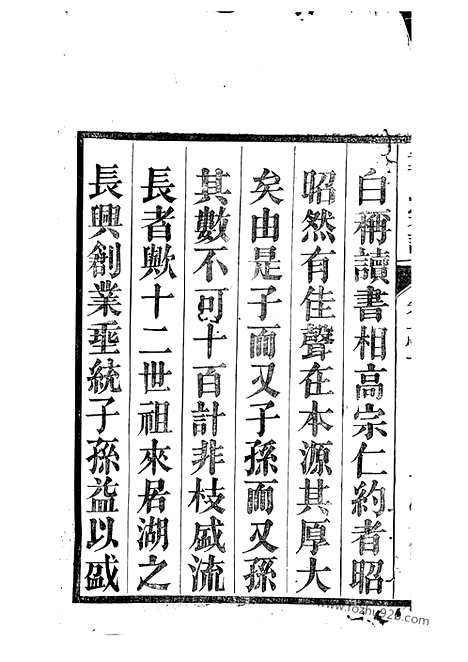 白稱讀書相高宗仁約者昭
昭然有佳聲在本源其厚大
矣由是子而又子孫而又孫
其數不可十百計非枝盛流
長者歟十二世祖來居湖之
長興創業垂統子孫益以盛
www.fozhu920.com